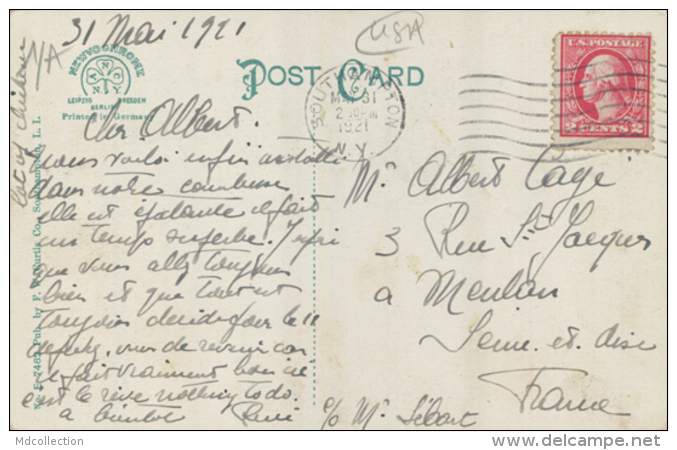 31 Mai 1921
USA
N/A
NEWVOCHROME
ANNOY
LEIPZIG DRESDEN
BERLIN
Printed in Germany
POST CARD
SOUTHAMPTON
MAY 31
2 30 PM
1921
N.Y.
U.S. POSTAGE
2 CENTS 2
Pub. by F. W. Curtis Co., Southampton, L. I.
Cher Albert.
nous voilà enfin installé
dans notre
elle est épatante il fait
un temps superbe. J'espère
que vous allez toujours
bien et que tout est
toujours décidé pour le 11
de revenir car
il fait vraiment bon ici
c'est le rêve nothing to do.
a bientot René
Mr Albert Cage
3 Rue St Jacques
a Meulan
Seine et Oise
France
c/o Mr Sébart
Mdcollection
www.delcampe.net